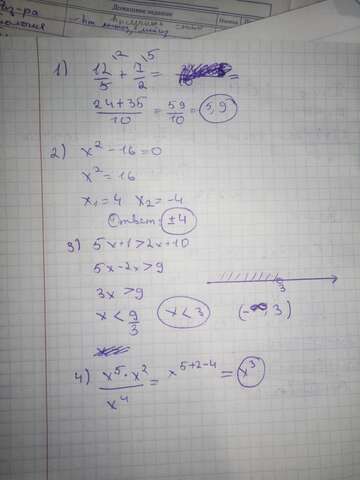 Домашнее задание
1) 12/5 + 7/2 = =
2 5
24+35/10 = 59/10 = 5,9
2) x² - 16 = 0
x² = 16
x₁ = 4 x₂ = -4
Ответ: ±4
3) 5x+1 > 2x+10
5x - 2x > 9
3x > 9
3
x < 9/3 x < 3 (-∞, 3)
4) x⁵ · x²/x⁴ = x⁵⁺²⁻⁴ = x³